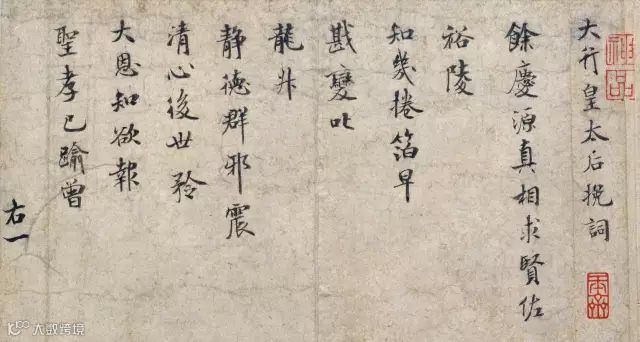 大行皇太后挽詞
餘慶源真相求賢佐
裕陵
知幾捲箔早
戡變叱
龍升
静德群邪震
清心後世矜
大恩知欲報
聖孝已踰曾
右一
神品
大数跨境